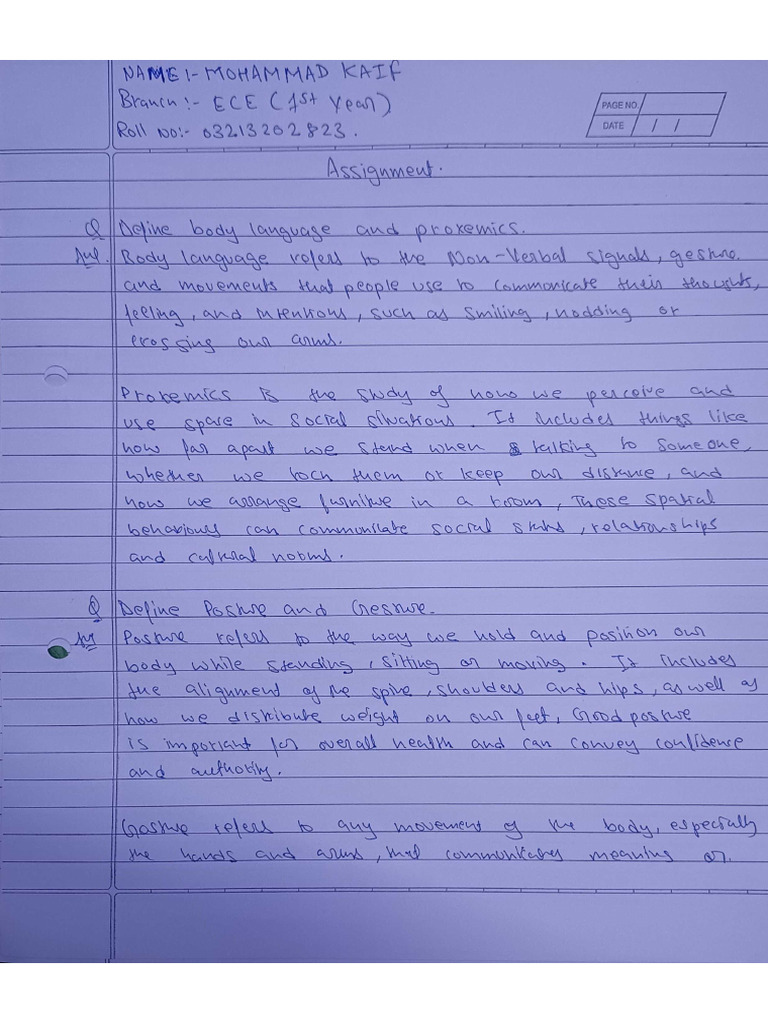 NAME:- MOHAMMAD KAIF
Branch:- ECE (1st Year)
Roll No:- 03213202823.
PAGE NO.
DATE / /
Assignment.
Q Define body language and proxemics.
Ans. Body language refers to the Non-Verbal signals, gesture
and movements that people use to communicate their thoughts,
feeling, and intentions, such as smiling, nodding or
crossing our arms.
Proxemics is the study of how we perceive and
use space in social situations. It includes things like
how far apart we stand when talking to someone,
whether we toch them or keep our distance, and
how we arrange furniture in a room, These spatial
behaviours can communicate social status, relationships
and cultural norms.
Q Define Posture and Gesture.
Ans Posture refers to the way we hold and position our
body while standing, sitting or moving. It includes
the alignment of the spine, shoulders and hips, as well as
how we distribute weight on our feet, Good posture
is important for overall health and can convey confidence
and authority.
Gesture refers to any movement of the body, especially
the hands and arms, that communicates meaning or